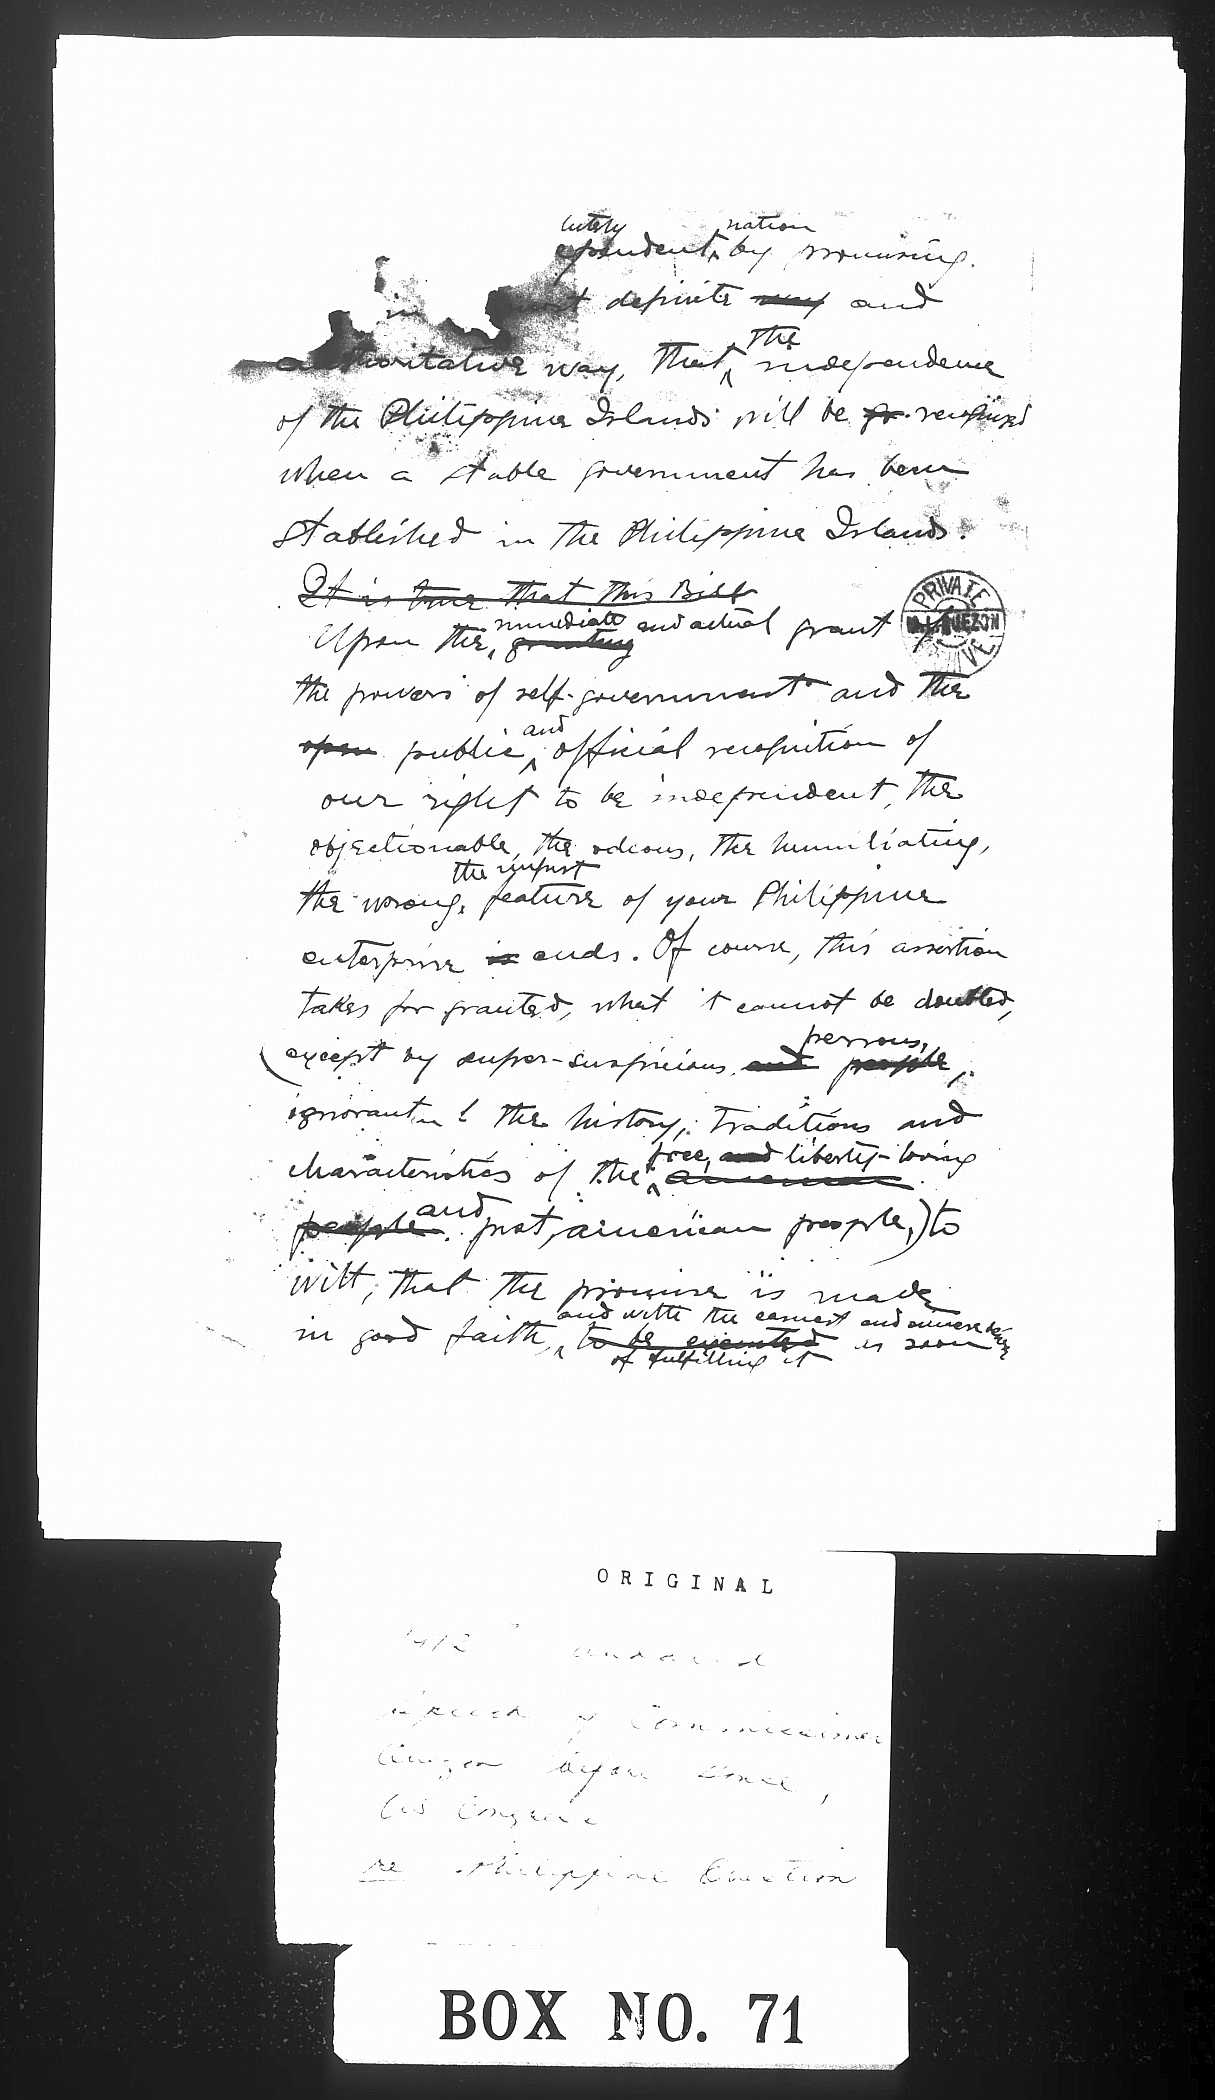 lutely nation
ependent, by promising.
in most definite way and
authoritative way, that the independence
of the Philippine Islands will be gr recognized
when a stable government has been
stablished in the Philippine Islands.
It is true that this Bill
Upon the, immediate granting and actual grant of
PRIVATE
M. L. QUEZON
the powers of self-government and the
open public, and official recognition of
our right to be independent, the
objectionable, the odious, the humiliating,
the unjust
the wrong, feature of your Philippine
enterprise is ends. Of course, this assertion
takes for granted, what it cannot be doubted,
(except by super-suspicious and people persons,
ignorant of the history, traditions and
characteristics of the free, and liberty-loving american
people and just, american people,) to
witt, that the promise is made
and with the earnest and sincere
in good faith, to be executed as soon
of fulfilling it
ORIGINAL
1912 undated
Speech of Commissioner
Quezon before
US Congress
re Philippine Question
BOX NO. 71